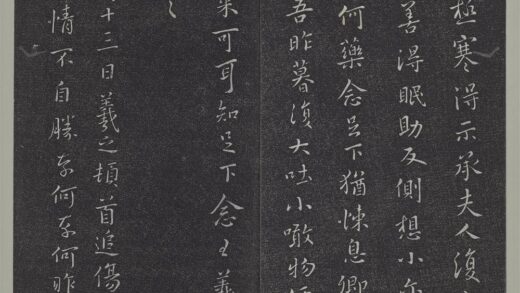 極寒得示承夫人復
善得眠助反側想小尔
何藥念足下猶悚息卿
吾昨暮復大吐小噉物便
來可耳知足下念王羲
之
十三日羲之頓首追傷
情不自勝奈何奈何昨